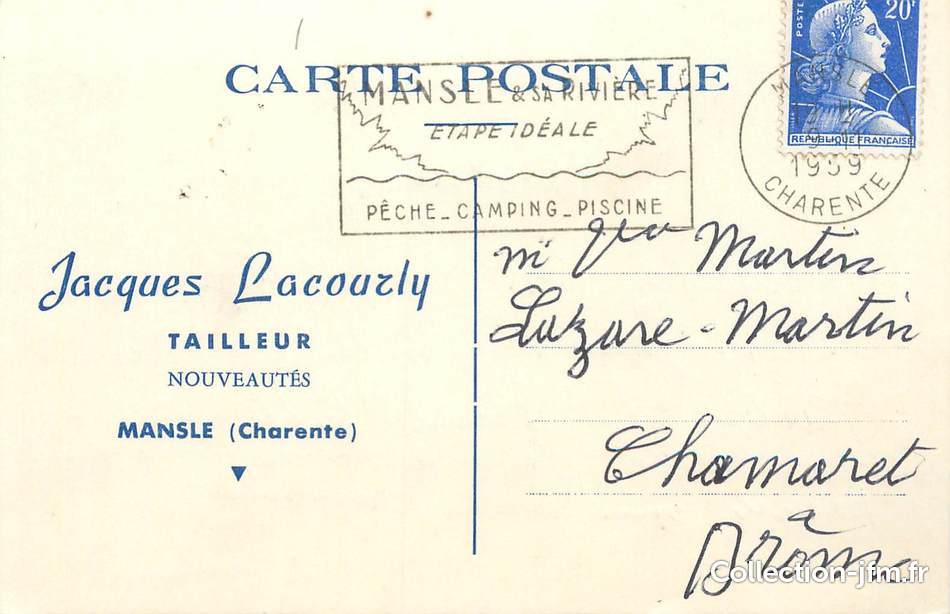 CARTE POSTALE
MANSLE & SA RIVIÈRE
ETAPE IDÉALE
PÊCHE _ CAMPING _ PISCINE
POSTES
20F
REPUBLIQUE FRANÇAISE
MANSLE
1959
CHARENTE
Jacques Lacourly
TAILLEUR
NOUVEAUTÉS
MANSLE (Charente)
Martin
Lazare-Martin
Chamaret
Drôme
Collection-jfm.fr